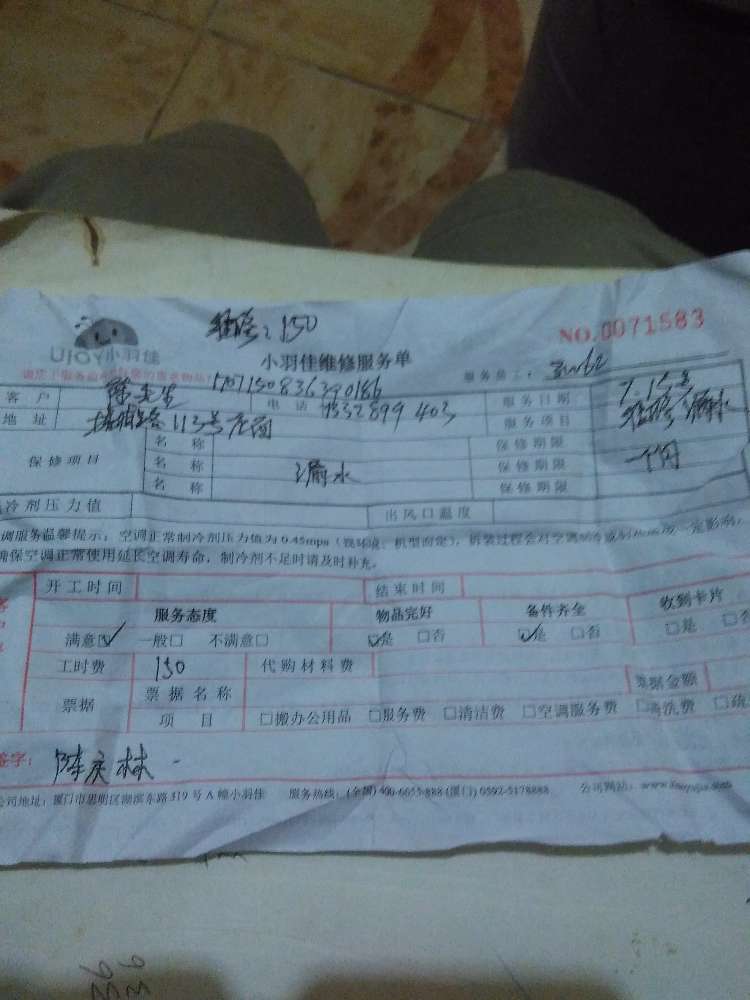 150
NO.0071583
UJOY小羽佳
小羽佳维修服务单
服务员工:
客户 陈先生 1707150836390186 服务日期: 7.15号
地址 113号店面 电话 服务项目 漏水
保修项目 名称 漏水 保修期限 一个月
名称 保修期限
名称 保修期限
冷剂压力值 出风口温度
调服务温馨提示:空调正常制冷剂压力值为0.45mpa(视环境、机型而定),拆装过程会对空调 一定影响,
确保空调正常使用延长空调寿命,制冷剂不足时请及时补充。
开工时间 结束时间
服务态度 物品完好 备件齐全 收到卡片
满意☑ 一般□ 不满意□ ☑是 □否 ☑是 □否 □是 □否
工时费 150 代购材料费
票据 票据名称 票据金额
项目 □搬办公用品 □服务费 □清洁费 □空调服务费 □清洗费
签字: 陈庆林
公司地址:厦门市思明区湖滨东路319号A幢小羽佳 服务热线:(全国)400-6655-888 (厦门) 0592-5178888 公司网站: